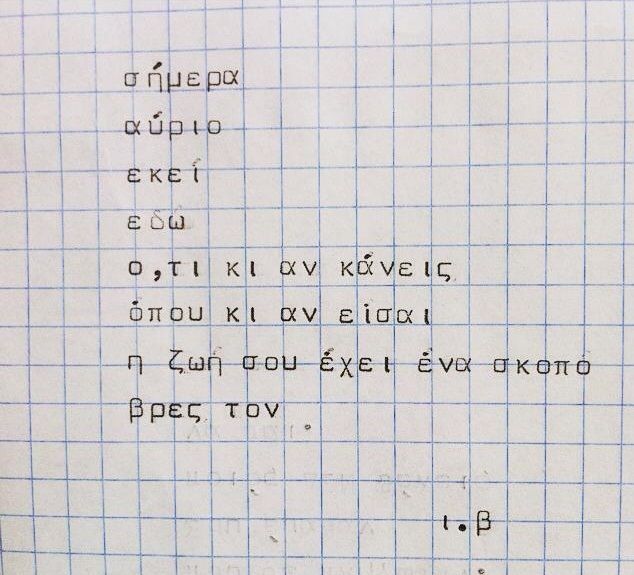 σήμερα
αύριο
εκεί
εδώ
ο,τι κι αν κάνεις
όπου κι αν είσαι
η ζωή σου έχει ένα σκοπό
βρες τον
ι.β